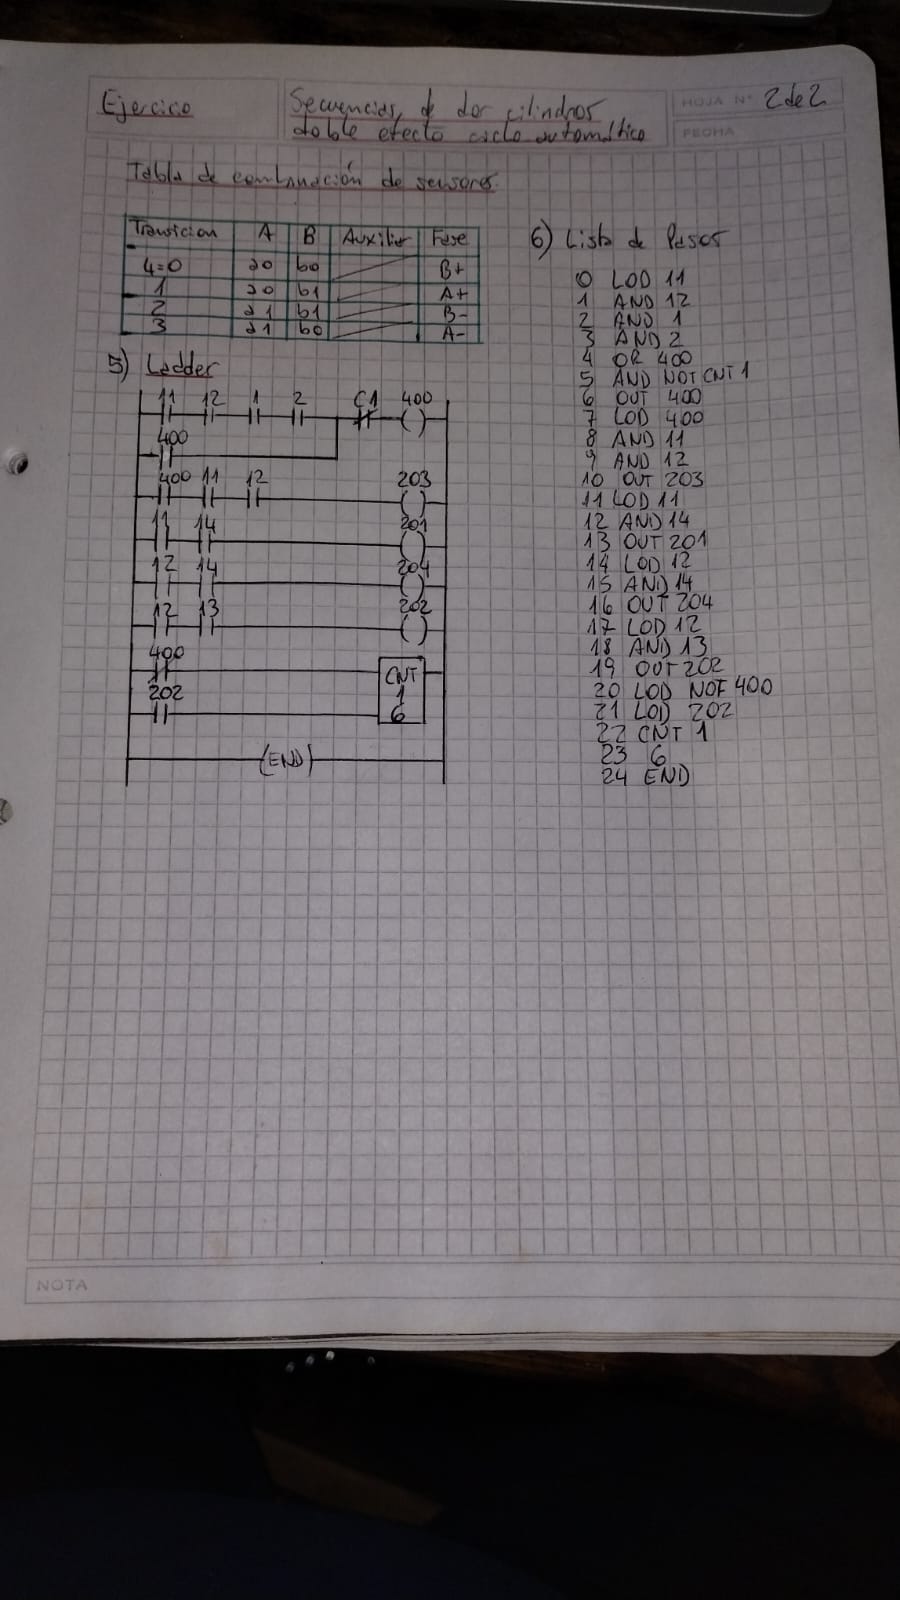 Ejercicio
Secuencias, de dos cilindros
doble efecto ciclo automático
HOJA N° 2 de 2
FECHA
Tabla de combinación de sensores.
Transicion A B Auxiliar Fase
4=0 a0 b0 B+
1 a0 b1 A+
2 a1 b1 B-
3 a1 b0 A-
5) Ladder
11 12 1 2 C1 400
400
400 11 12 203
11 14 201
12 14 204
12 13 202
400
202
CNT
1
6
(END)
6) Lista de Pasos
0 LOD 11
1 AND 12
2 AND 1
3 AND 2
4 OR 400
5 AND NOT CNT 1
6 OUT 400
7 LOD 400
8 AND 11
9 AND 12
10 OUT 203
11 LOD 11
12 AND 14
13 OUT 201
14 LOD 12
15 AND 14
16 OUT 204
17 LOD 12
18 AND 13
19 OUT 202
20 LOD NOT 400
21 LOD 202
22 CNT 1
23 6
24 END
NOTA